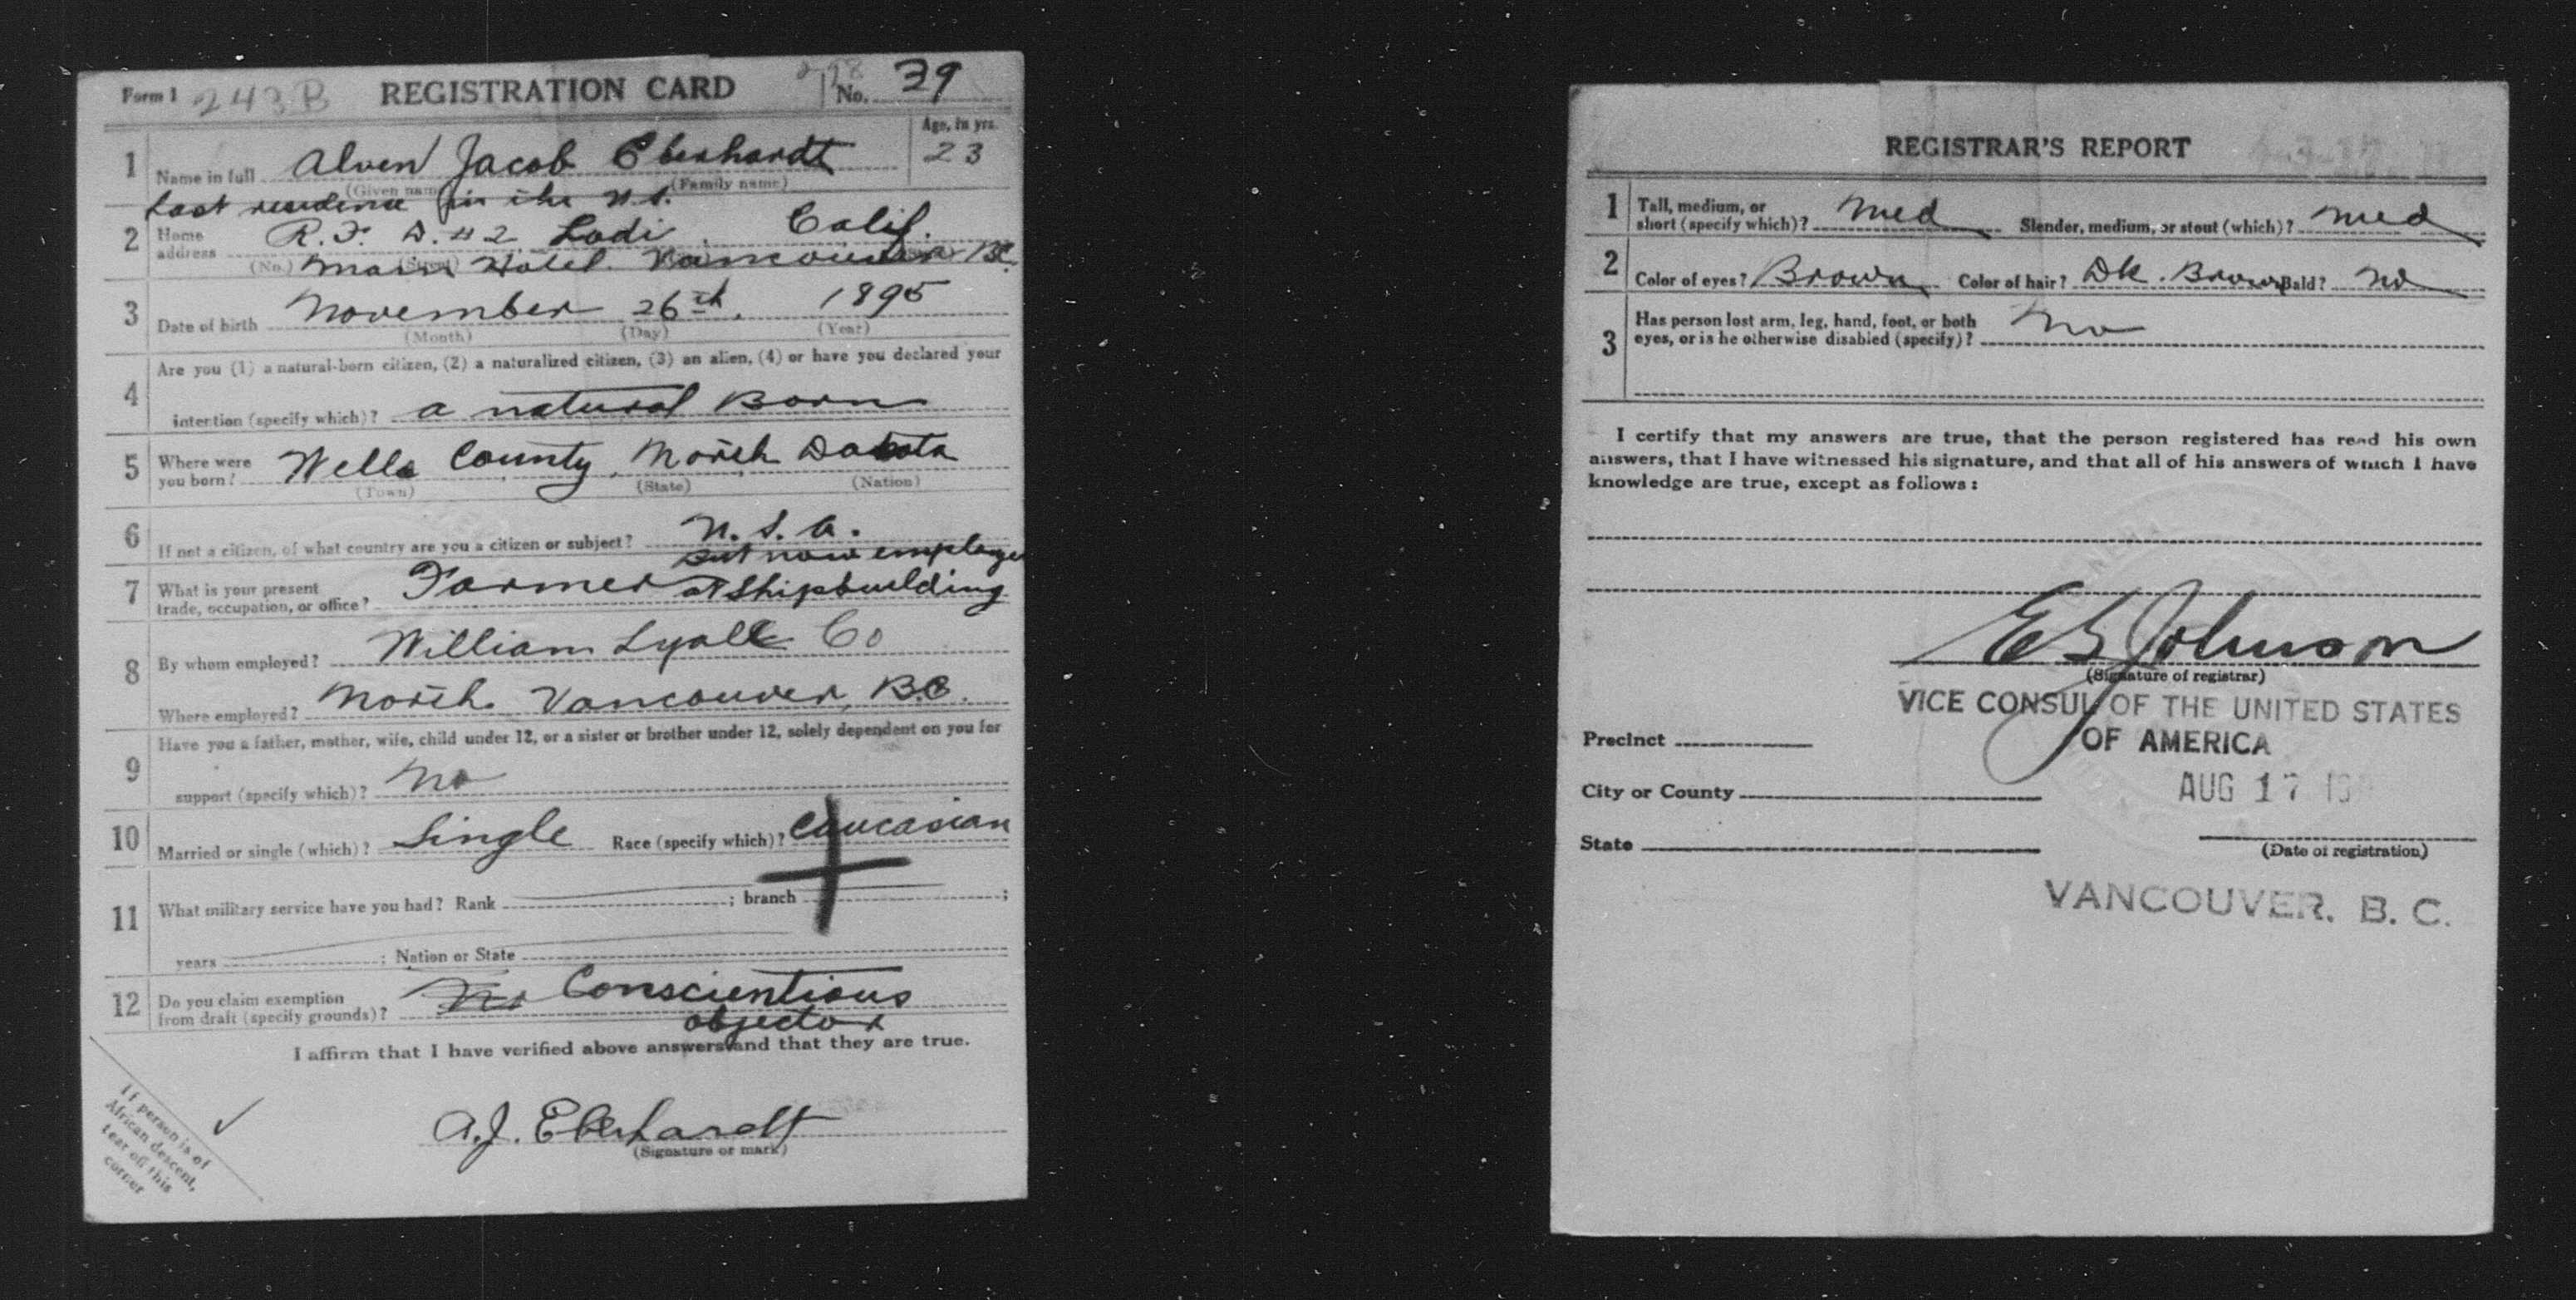 Form 1 243 B REGISTRATION CARD No. 39
1 Name in full Alven Jacob Eberhardt Age, in yrs. 23
(Given name) (Family name)
Last residence in the U.S.
2 Home address R. F. D. #2 Lodi, Calif.
(No.) Main Hotel. Vancouver B.C.
3 Date of birth November 26th, 1895
(Month) (Day) (Year)
4 Are you (1) a natural-born citizen, (2) a naturalized citizen, (3) an alien, (4) or have you declared your
intention (specify which)? a natural Born
5 Where were you born? Wells County, North Dakota
(Town) (State) (Nation)
6 If not a citizen, of what country are you a citizen or subject? U. S. A.
but now employed
7 What is your present trade, occupation, or office? Farmer at Shipbuilding
8 By whom employed? William Lyall Co
Where employed? North Vancouver, B.C.
9 Have you a father, mother, wife, child under 12, or a sister or brother under 12, solely dependent on you for
support (specify which)? No
10 Married or single (which)? Single Race (specify which)? Caucasian
11 What military service have you had? Rank ; branch ;
years ; Nation or State
12 Do you claim exemption from draft (specify grounds)? No Conscientious
objector
I affirm that I have verified above answers and that they are true.
A. J. Eberhardt
(Signature or mark)
If person is of
African descent,
tear off this
corner
REGISTRAR'S REPORT
1 Tall, medium, or short (specify which)? Med Slender, medium, or stout (which)? Med
2 Color of eyes? Brown Color of hair? Dk. Brown Bald? No
3 Has person lost arm, leg, hand, foot, or both
eyes, or is he otherwise disabled (specify)? No
I certify that my answers are true, that the person registered has read his own
answers, that I have witnessed his signature, and that all of his answers of which I have
knowledge are true, except as follows:
E G Johnson
(Signature of registrar)
VICE CONSUL OF THE UNITED STATES
Precinct OF AMERICA
City or County AUG 17
State (Date of registration)
VANCOUVER. B. C.